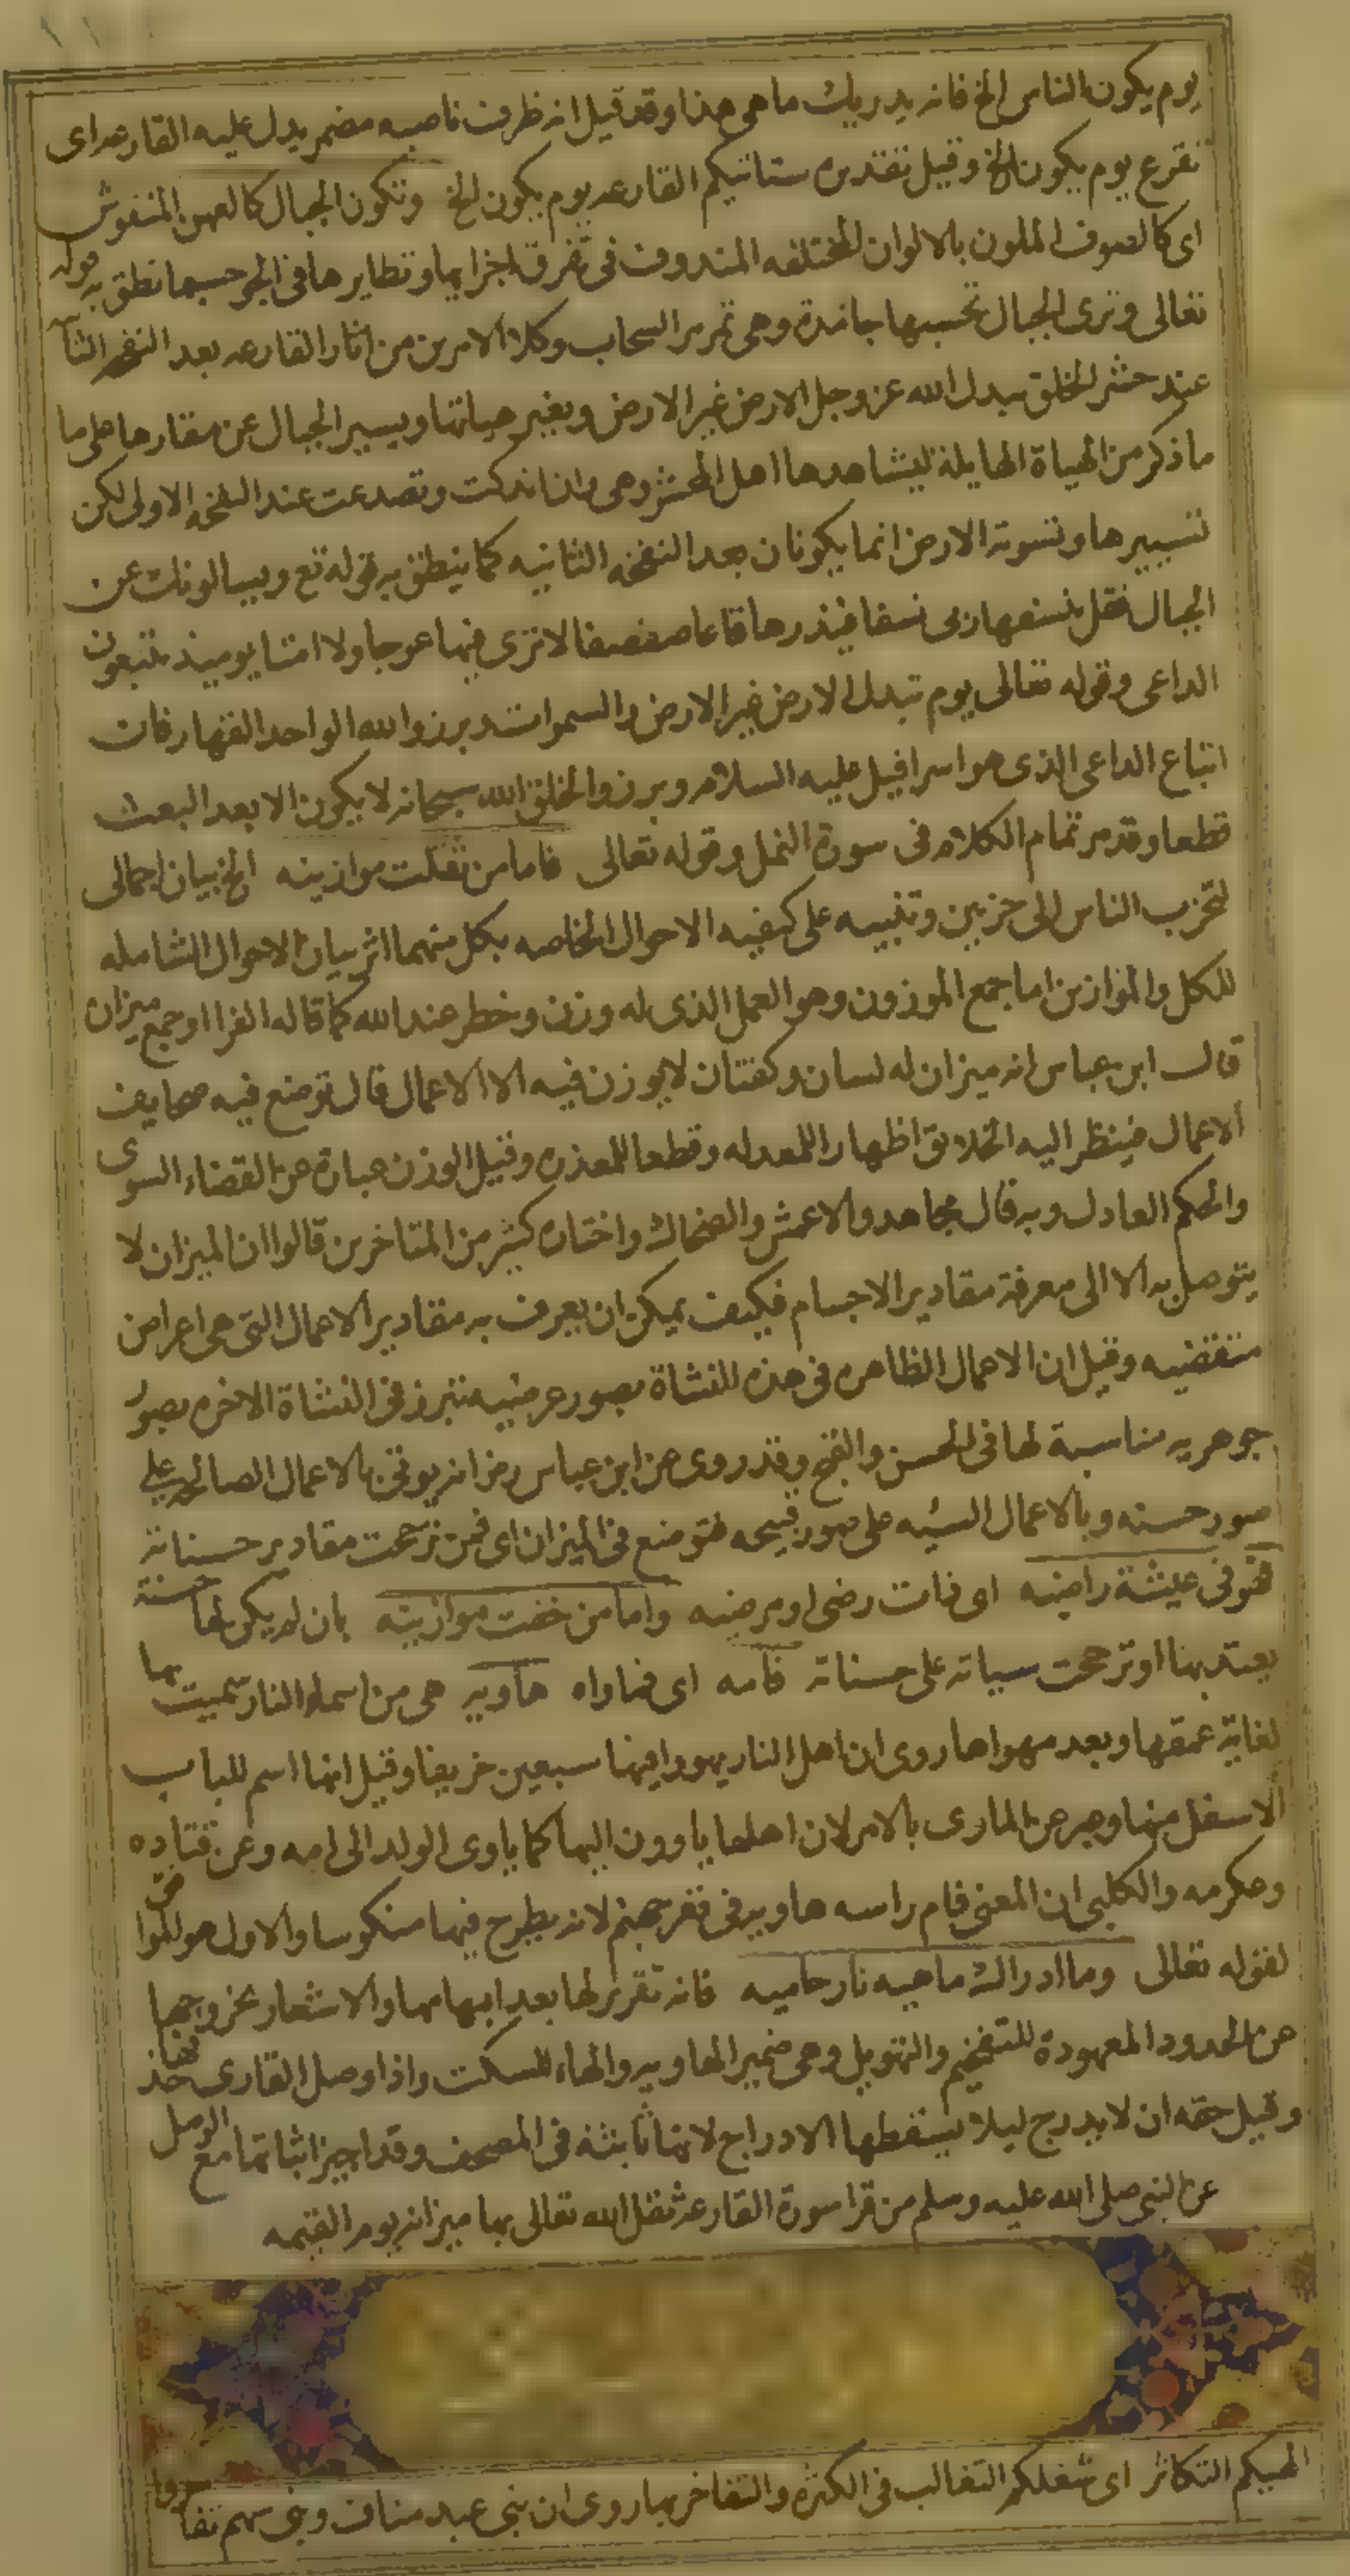 يوم يكون الناس الخ فانه يدريك ما هي هذا وقد قيل انه ظرف ناصبه مضمر يدل عليه القارعه اى
تقرع يوم يكون الخ وقيل تقديره ستاتيكم القارعه يوم يكون الخ وتكون الجبال كالعهن المنفوش
اى كالصوف الملون بالالوان المختلفه المندوف فى تفرق اجزايها وتطايرها فى الجو حسبما نطق به قوله
تعالى وترى الجبال تحسبها جامدة وهى تمر مر السحاب وكلا الامرين من اثار القارعه بعد النفخه الثا
عند حشر الخلق يبدل الله عز وجل الارض غير الارض ويغير هياتها ويسير الجبال عن مقارها على ما
ما ذكر من الهياة الهايلة ليشاهدها اهل المحشر وهى وان اندكت وتصدعت عند النفخه الاولى لكن
تسييرها وتسوية الارض انما يكونان بعد النفخه الثانيه كما ينطق به قوله تع ويسالونك عن
الجبال فقل ينسفها ربى نسفا فيذرها قاعا صفصفا لا ترى فيها عوجا ولا امتا يوميذ يتبعون
الداعى وقوله تعالى يوم تبدل الارض غير الارض والسموات وبرزوا لله الواحد القهار فان
اتباع الداعى الذى هو اسرافيل عليه السلام وبروز الخلق لله سبحانه لا يكون الا بعد البعث
قطعا وقد مر تمام الكلام فى سورة النمل وقوله تعالى فاما من ثقلت موازينه الخ بيان اجمالى
لتحزب الناس الى حزبين وتنبيه على كيفيه الاحوال الخاصه بكل منهما اثر بيان الاحوال الشامله
للكل والموازين اما جمع الموزون وهو العمل الذى له وزن وخطر عند الله كما قاله الفرا او جمع ميزان
قال ابن عباس انه ميزان له لسان وكفتان لا يوزن فيه الا الاعمال قال توضع فيه صحايف
الاعمال فينظر اليه الخلايق اظهارا للمعدله وقطعا للمعذره وقيل الوزن عبارة عن القضاء السوى
والحكم العادل وبه قال مجاهد والاعمش والضحاك واختاره كثير من المتاخرين قالوا ان الميزان لا
يتوصل به الا الى معرفة مقادير الاجسام فكيف يمكن ان يعرف به مقادير الاعمال التى هى اعراض
منقضيه وقيل ان الاعمال الظاهره فى هذه النشاة بصور عرضيه تبرز فى النشاة الاخره بصور
جوهريه مناسبة لها فى الحسن والقبح وقد روى عن ابن عباس رض انه يوتى بالاعمال الصالحه على
صور حسنه وبالاعمال السيئه على صور قبيحه فتوضع فى الميزان اى فمن ترجحت مقادير حسناته
فهو فى عيشة راضيه اى ذات رضى او مرضيه واما من خفت موازينه بان لم يكن لها حسنة
يعتد بها او ترجحت سياته على حسناته فامه اى فماواه هاويه هى من اسماء النار سميت بها
لغاية عمقها وبعد مهواها روى ان اهل النار يهوون فيها سبعين خريفا وقيل انها اسم للباب
الاسفل منها وعبر عن الماوى بالام لان اهلها ياوون اليها كما ياوى الولد الى امه وعن قتاده
وعكرمه والكلبى ان المعنى فام راسه هاويه فى قعر جهنم لانه يطرح فيها منكوسا والاول هو الموافق
لقوله تعالى وما ادراك ما هيه نار حاميه فانه تقرير لها بعد ابهامها والاشعار بخروجها
عن الحدود المعهودة للتفخيم والتهويل وهى ضمير الهاويه والهاء للسكت واذا وصل القارى حذفها
وقيل حقه ان لا يدرج ليلا يسقطها الادراج لانها ثابتة فى المصحف وقد اجيز اثباتها مع الوصل
عن النبى صلى الله عليه وسلم من قرا سورة القارعة ثقل الله تعالى بها ميزانه يوم القيمه
الهيكم التكاثر اى شغلكم التغالب فى الكثره والتفاخر بها روى ان بنى عبد مناف وبنى سهم تفاخروا